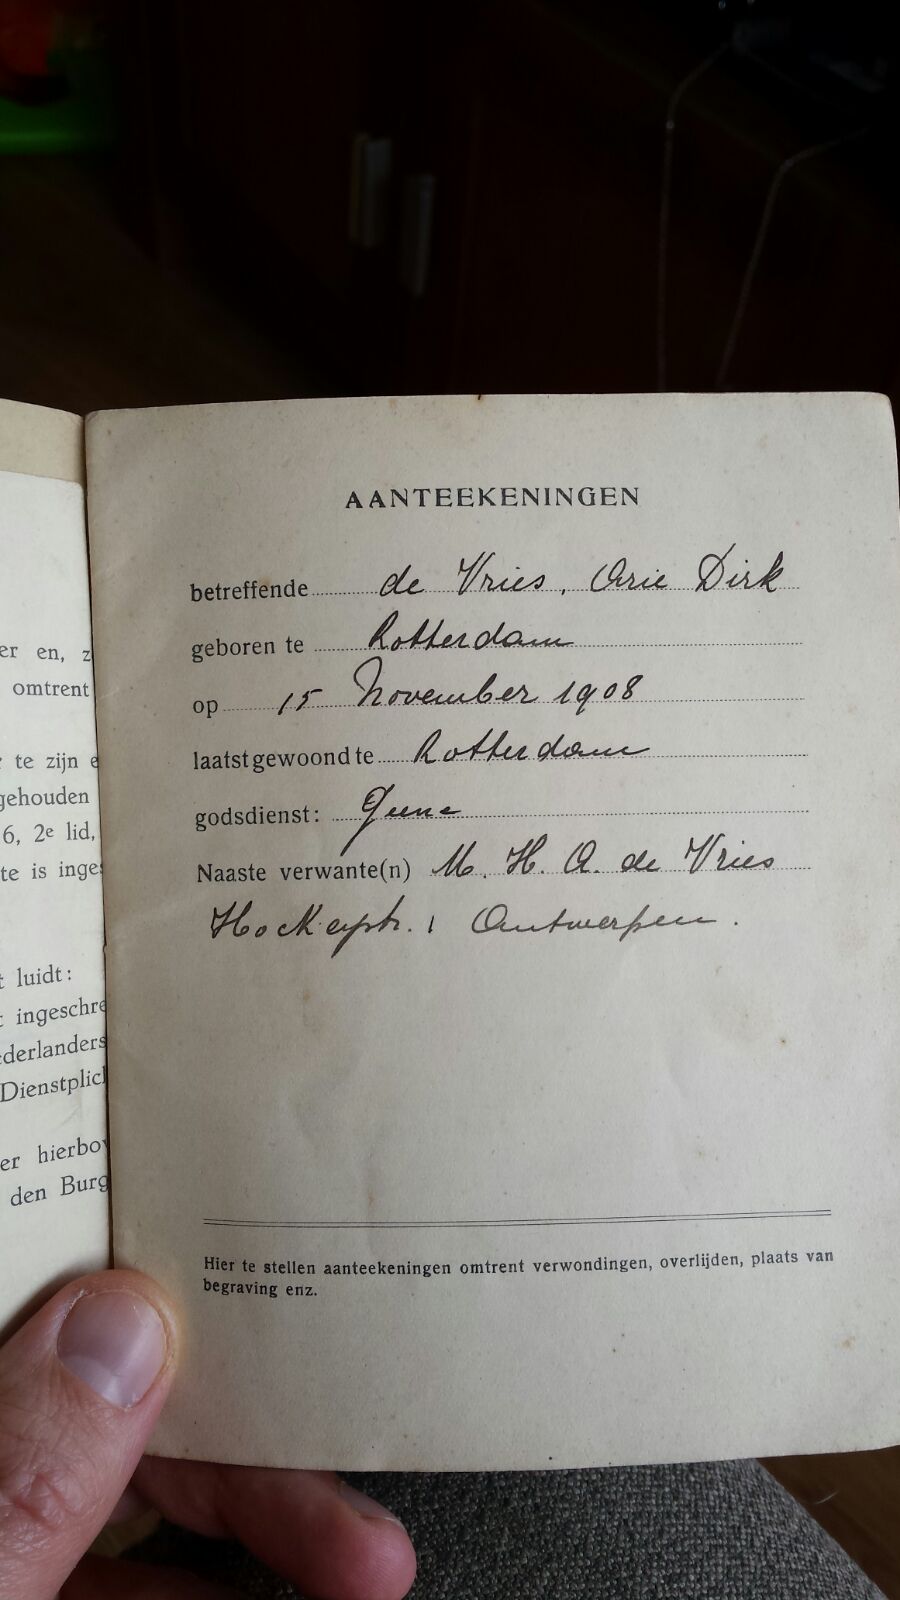 AANTEEKENINGEN
betreffende de Vries, Arie Dirk
geboren te Rotterdam
op 15 November 1908
laatst gewoond te Rotterdam
godsdienst: Geene
Naaste verwante(n) M. H. A. de Vries
1 Antwerpen.
Hier te stellen aanteekeningen omtrent verwondingen, overlijden, plaats van
begraving enz.
er en, z
omtrent
te zijn e
gehouden
6, 2e lid,
te is inge
luidt:
ingeschre
ederlanders
Dienstplic
er hierbo
den Burg